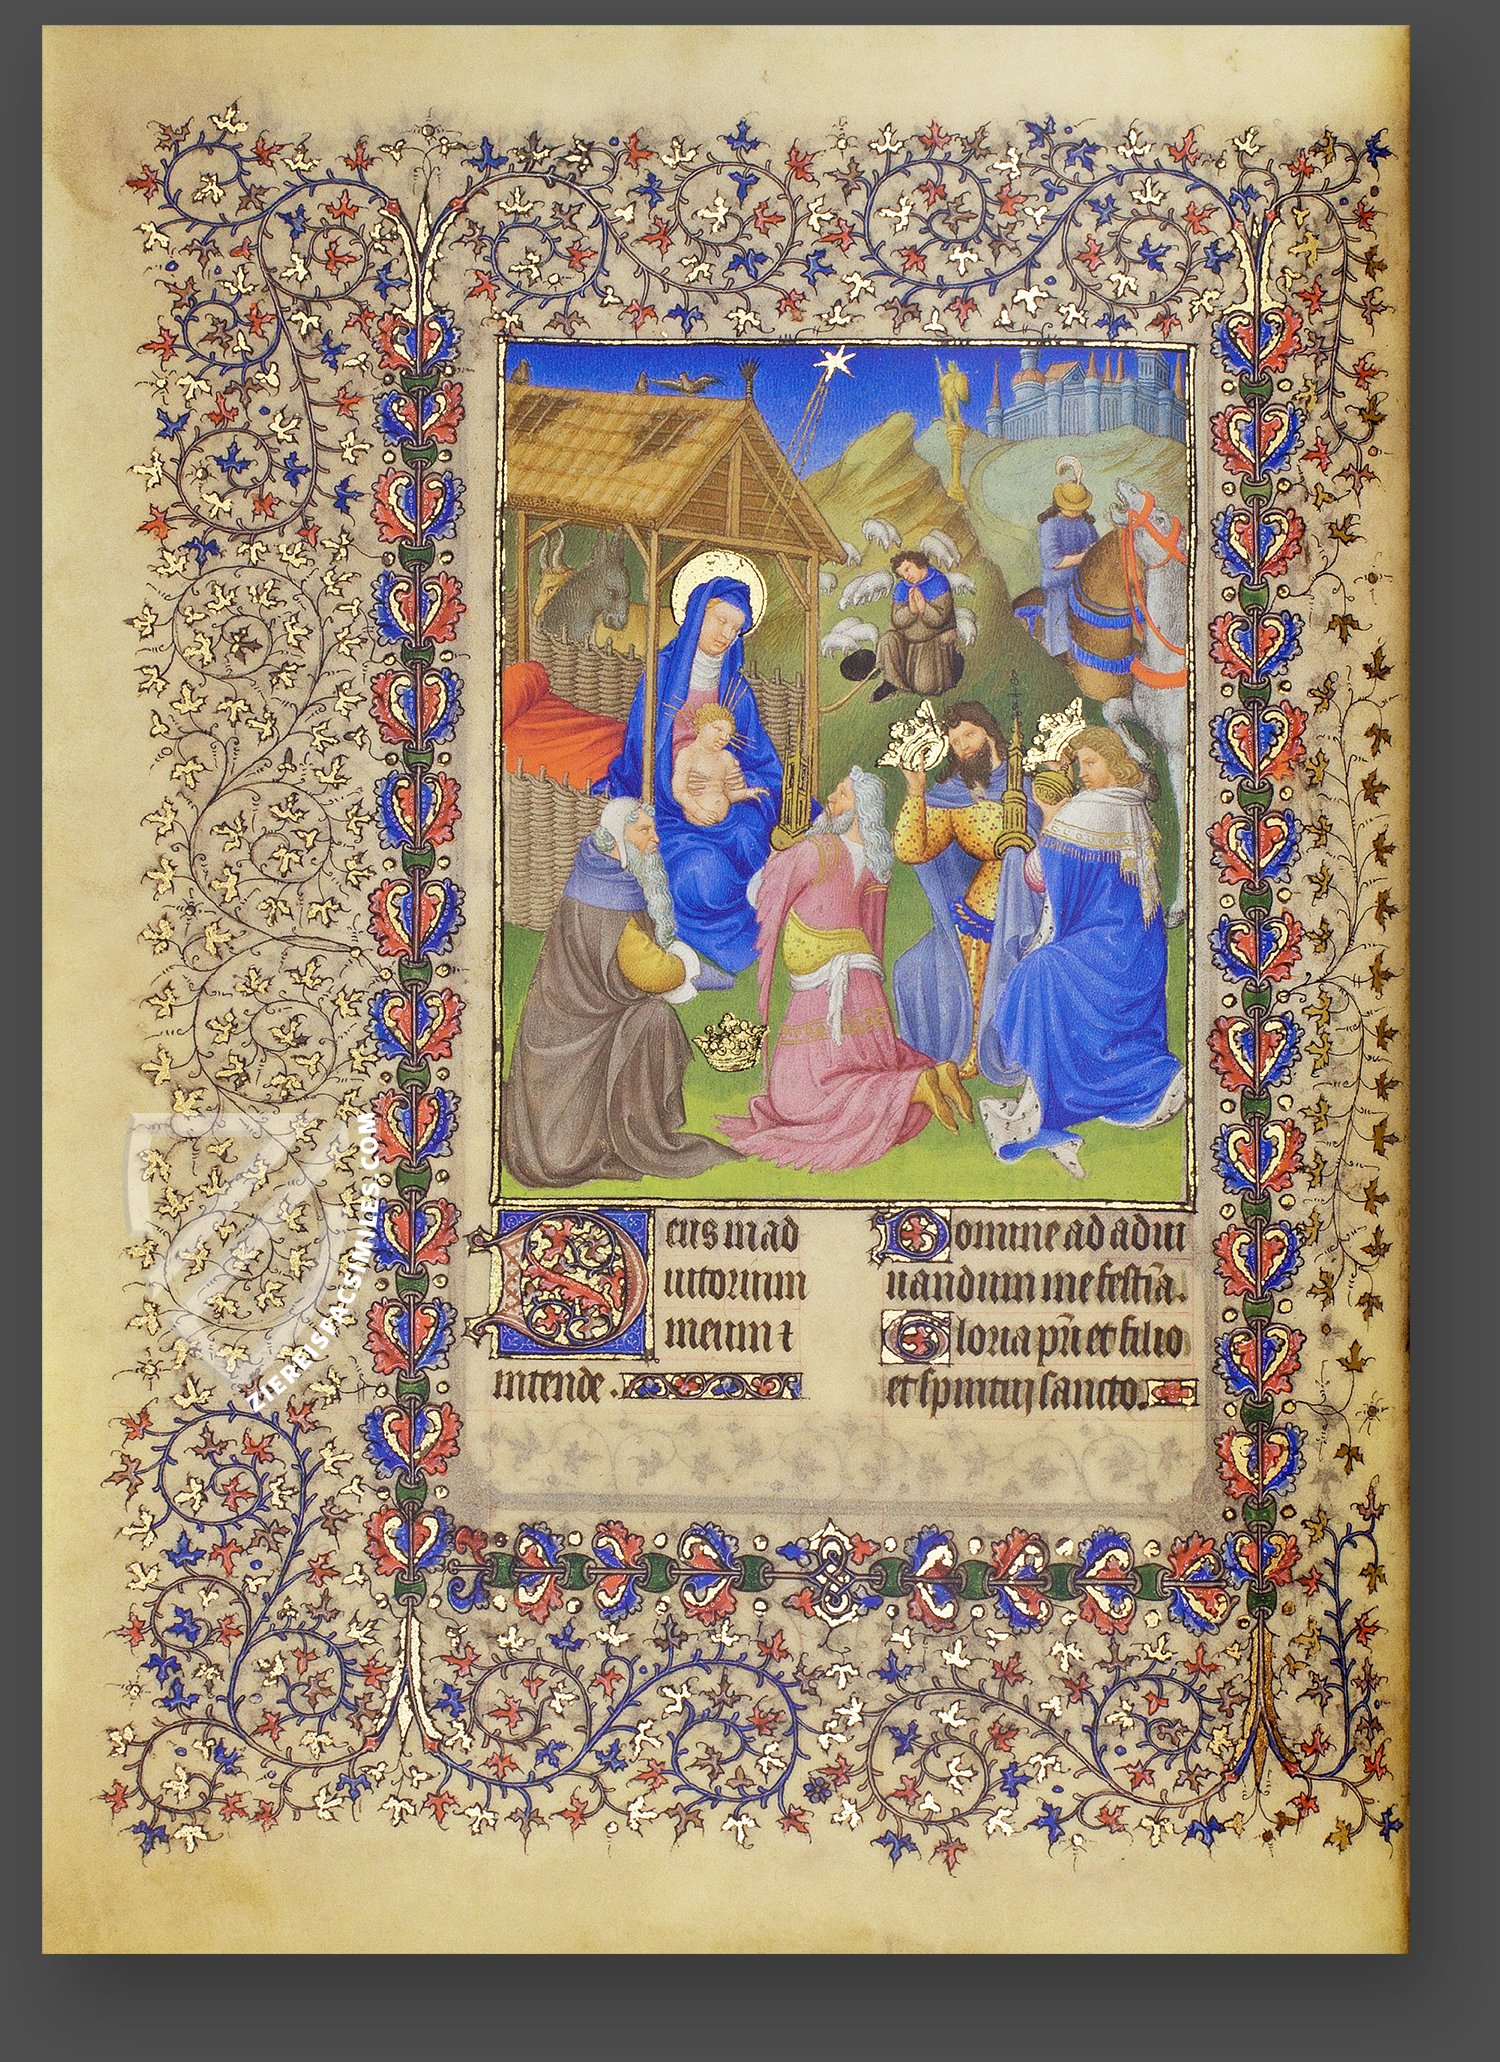 Deus in ad
iutorium
meum i
ntende.
Domine ad adiu
uandum me festi͞a.
Gloria pr͞i et filio
et spiritui sancto.
ZIEREISFACSIMILES.COM